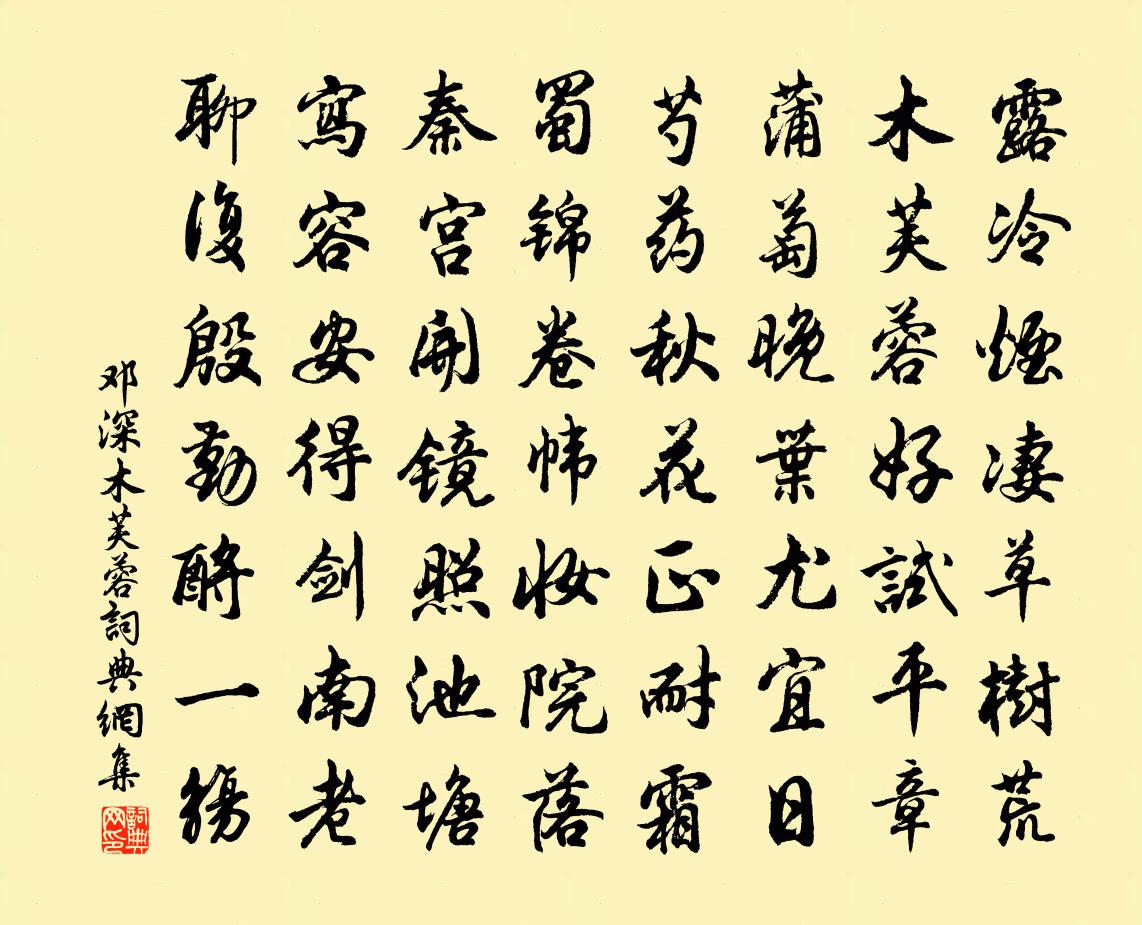 露冷煙凄草樹荒
木芙蓉好試平章
蒲萄晚葉尤宜日
芍药秋花正耐霜
蜀锦卷帏妆院落
秦宫開镜照池塘
寫容安得剑南老
聊復殷勤酹一觴
邓深木芙蓉詞典網集
詞典網印